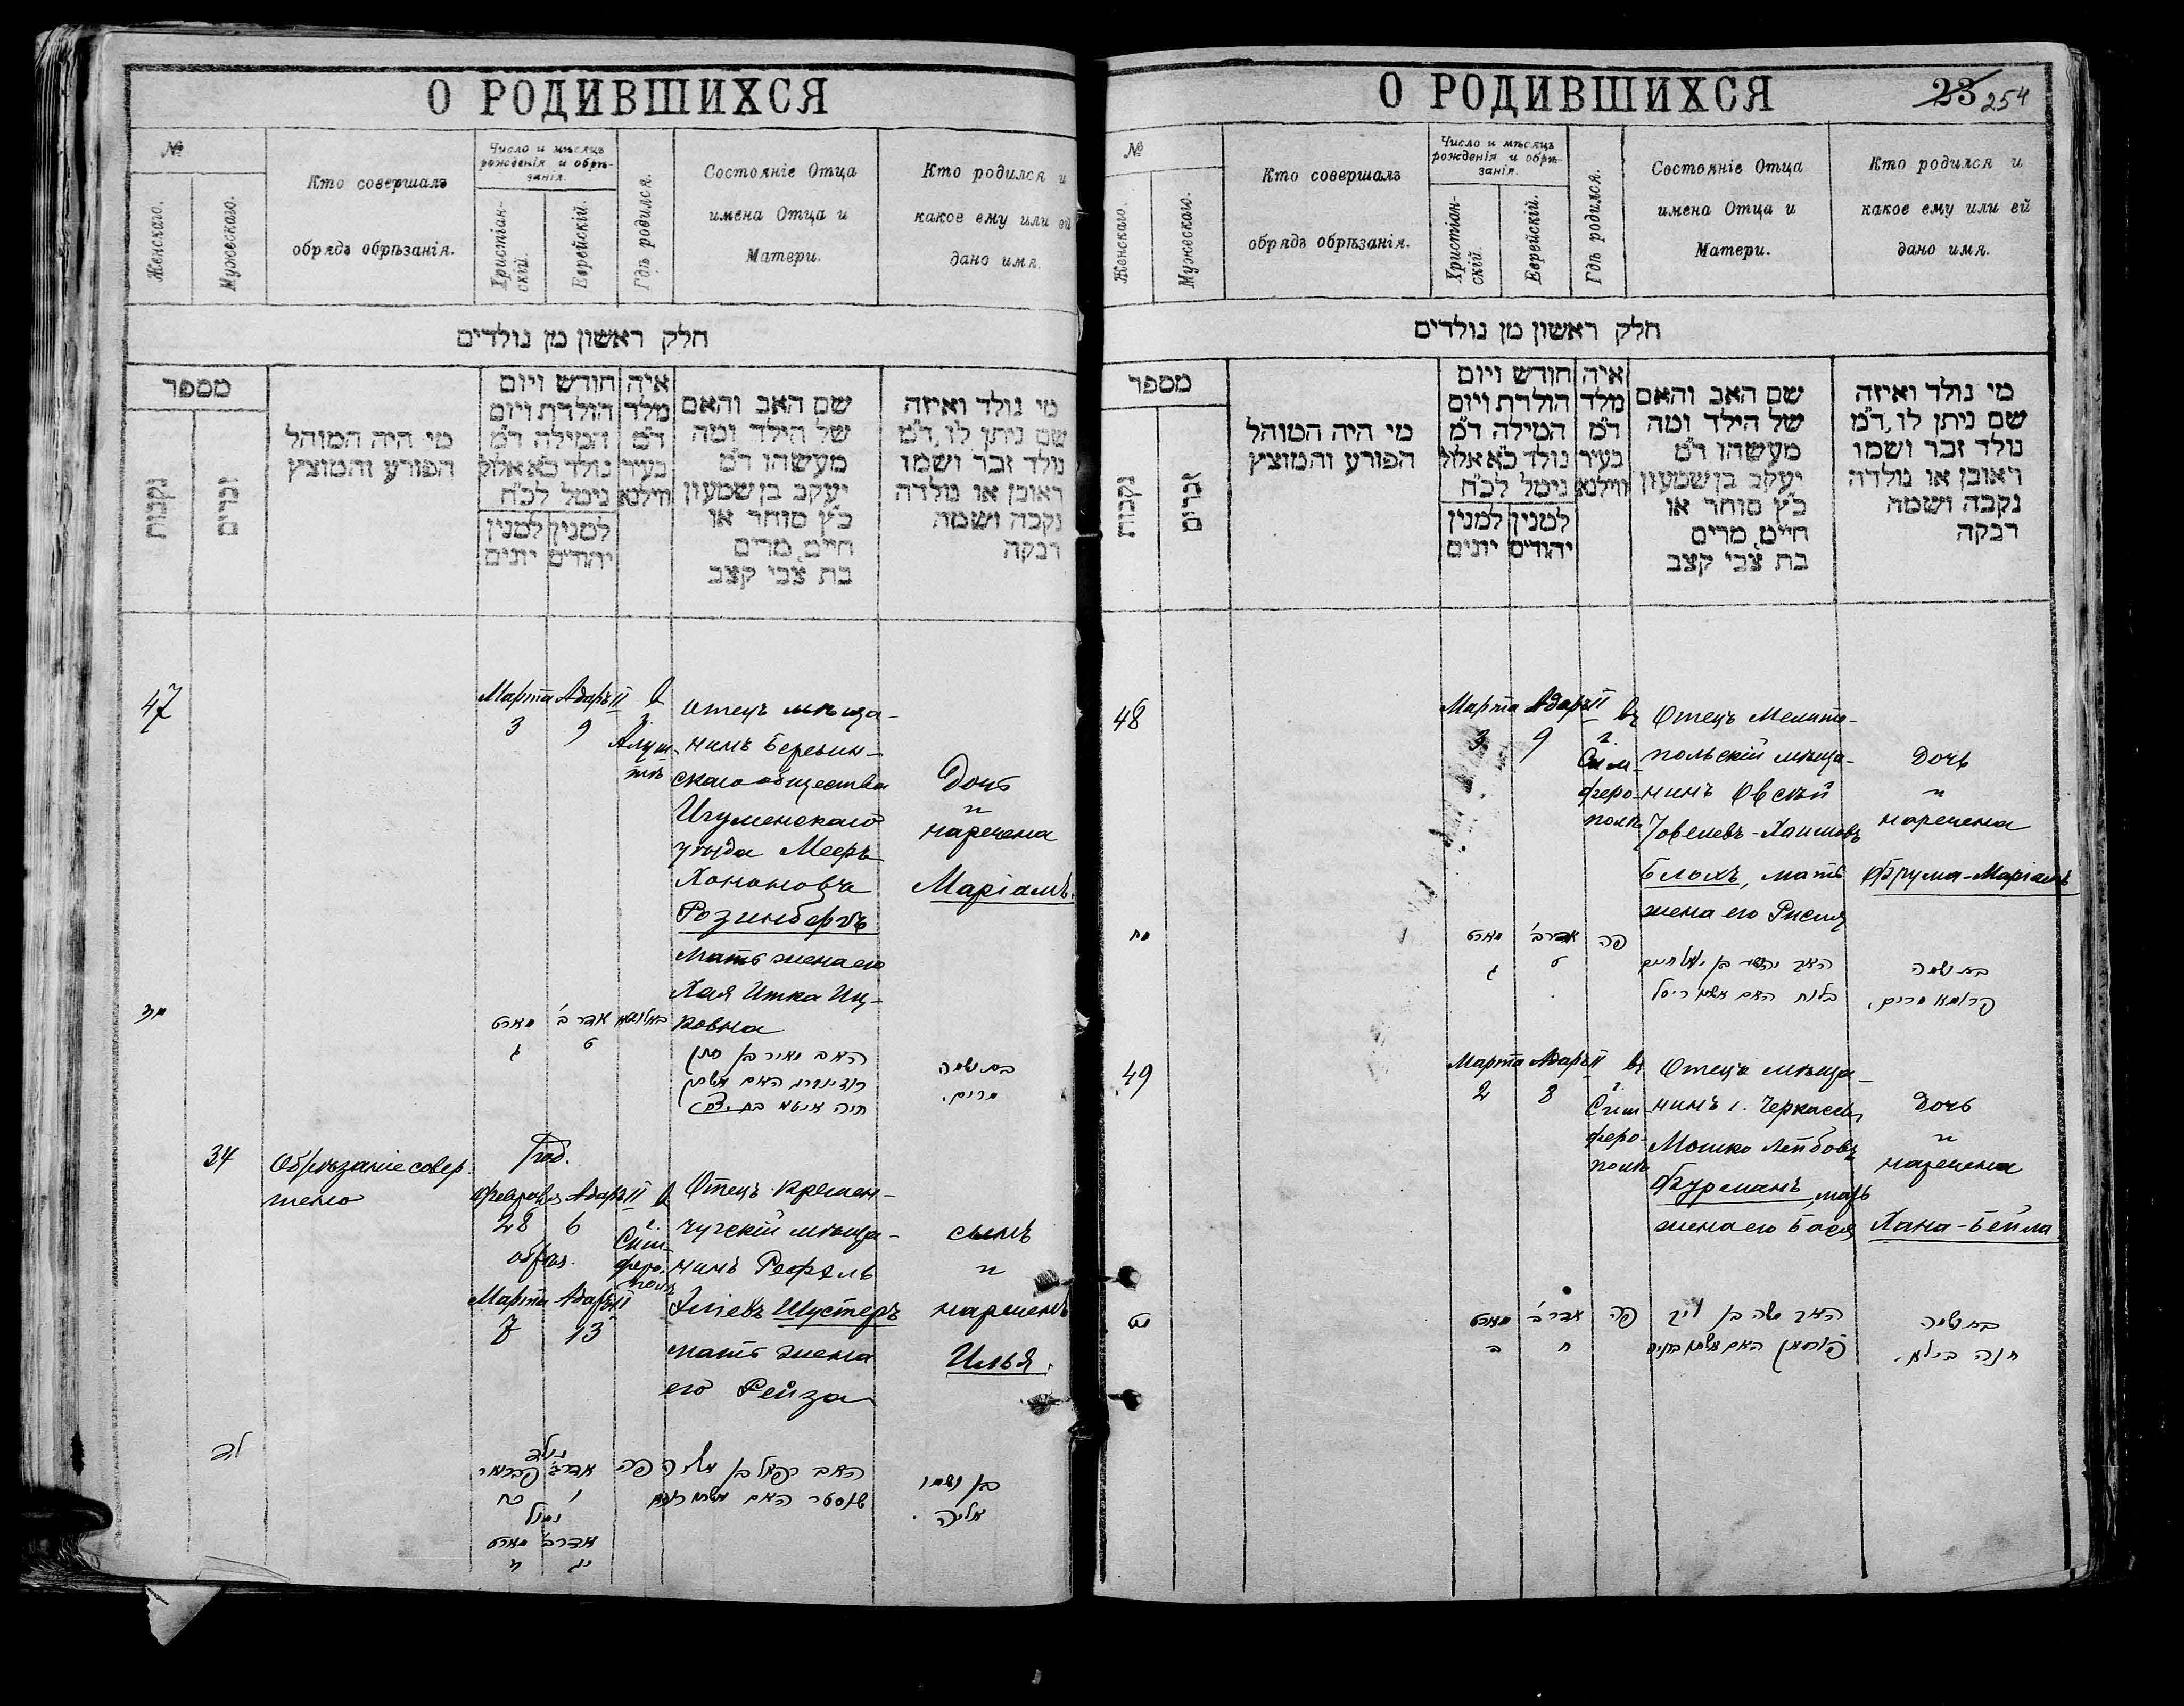 О РОДИВШИХСЯ
№
Женскаго.
Мужескаго.
Кто совершалъ
обрядъ обрѣзанія.
Число и мѣсяцъ
рожденія и обрѣ-
занія.
Христіан-
скій.
Еврейскій.
Гдѣ родился.
Состояніе Отца
имена Отца и
Матери.
Кто родился и
какое ему или ей
дано имя.
חלק ראשון מן נולדים
מספר
נקבות
זכרים
מי היה המוהל
הפורע והמוצץ
חודש ויום
הולדת ויום
המילה ד״מ
נולד כ״א אלול
נימל לכ״ח
למנין למנין
יהודים יונים
איה
מלד
ד״מ
בעיר
ווילנא
שם האב והאם
של הילד ומה
מעשהו ד״מ
יעקב בן שמעון
כ״ץ סוחר או
חיים, מרים
בת צבי קצב
מי נולד ואיזה
שם ניתן לו, ד״מ
נולד זכר ושמו
ראובן או נולדה
נקבה ושמה
רבקה
47
Марта Адаръ II
3 9
в
г.
Алуш-
тѣ
Отецъ мѣща-
нинъ Березин-
скаго общества
Игуменскаго
уѣзда Мееръ
Хононовъ
Розинбергъ
Мать жена его
Хая Итка Иц-
ковна
Дочь
и
наречена
Маріамъ.
מז
מארט אדר ב׳
ג ט
האב מאיר בן חנן
האם אשתו
חיה איטא בת
בת ושמה
מרים.
34
Обрѣзаніе совер-
шено
Род.
Февраля Адаръ II
28 6
обрѣз.
Марта Адаръ II
7 13
в
г.
Сим-
феро-
полѣ
Отецъ Кремен-
чугскій мѣща-
нинъ Рефэль
Эліевъ Шустеръ
мать жена
его Рейза
сынъ
и
нареченъ
Илья.
לד
נולד
אדר ב׳ פברואר
ו כח
נימול
אדר ב׳ מארט
יג ז
פה
האב רפאל בן אליה
שוסטר האם אשתו רייזא
בן ושמו
אליה.
О РОДИВШИХСЯ
23 254
№
Женскаго.
Мужескаго.
Кто совершалъ
обрядъ обрѣзанія.
Число и мѣсяцъ
рожденія и обрѣ-
занія.
Христіан-
скій.
Еврейскій.
Гдѣ родился.
Состояніе Отца
имена Отца и
Матери.
Кто родился и
какое ему или ей
дано имя.
חלק ראשון מן נולדים
מספר
נקבות
זכרים
מי היה המוהל
הפורע והמוצץ
חודש ויום
הולדת ויום
המילה ד״מ
נולד כ״א אלול
נימל לכ״ח
למנין למנין
יהודים יונים
איה
מלד
ד״מ
בעיר
ווילנא
שם האב והאם
של הילד ומה
מעשהו ד״מ
יעקב בן שמעון
כ״ץ סוחר או
חיים, מרים
בת צבי קצב
מי נולד ואיזה
שם ניתן לו, ד״מ
נולד זכר ושמו
ראובן או נולדה
נקבה ושמה
רבקה
48
Марта Адаръ II
3 9
въ
г.
Сим-
феро-
полѣ
Отецъ Мелито-
польскій мѣща-
нинъ Овсѣй
Іовелевъ-Хаимовъ
Блохъ, мать
жена его Рися
Дочь
и
наречена
Фрума-Маріамъ
מח
מארט אדר ב׳ פה
ג ט
בלוח האם אשתו ריסל
בת ושמה
פרומא מרים.
49
Марта Адаръ II
2 8
въ
г.
Сим-
феро-
полѣ
Отецъ мѣща-
нинъ г. Черкассъ
Мошко Лейбовъ
Фурманъ, мать
жена его Бася
Дочь
и
наречена
Хана-Бейла
מט
מארט אדר ב׳ פה
ב ח
האב משה בן ליב
פורמאן האם אשתו
בת ושמה
חנה ביילא.